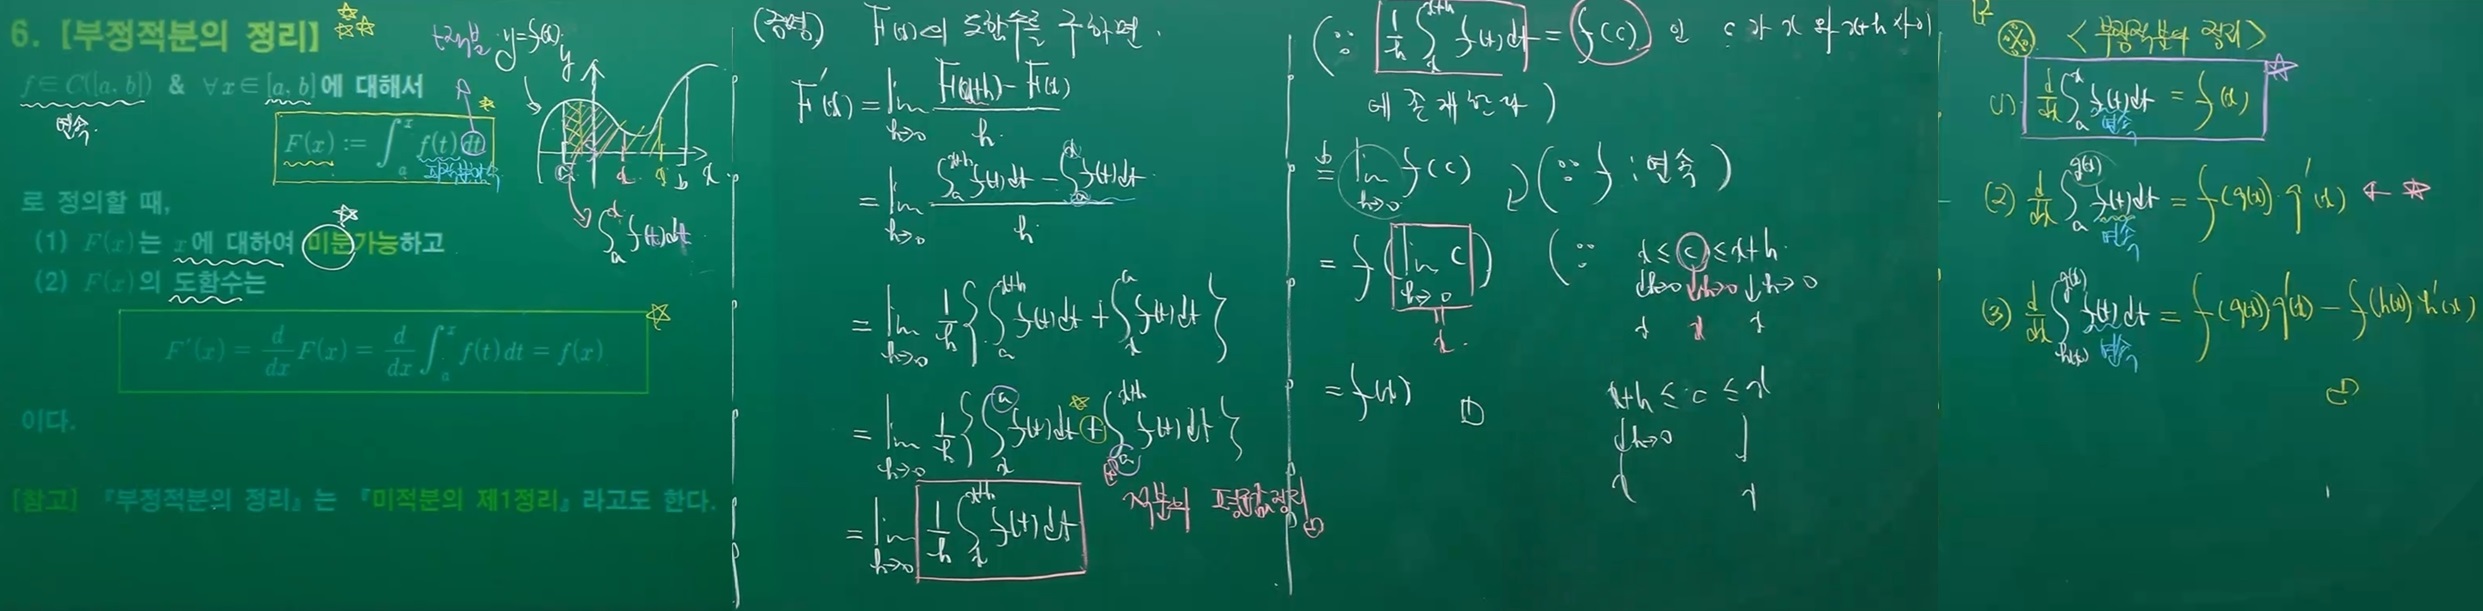 6. [부정적분의 정리]
t에 대한 y=f(x)
y
f ∈ C([a, b]) & ∀x ∈ [a, b]에 대해서
연속
F(x) := ∫_a^x f(t) dt
a x b x
∫_a^x f(t)dt
로 정의할 때,
(1) F(x)는 x에 대하여 미분가능하고
(2) F(x)의 도함수는
F′(x) = d/dx F(x) = d/dx ∫_a^x f(t) dt = f(x)
이다.
[참고] 『부정적분의 정리』는 『미적분의 제1정리』라고도 한다.
(증명) F(x)의 도함수를 구하면.
F′(x) = lim_{h→0} (F(x+h) − F(x))/h
= lim_{h→0} (∫_a^{x+h} f(t)dt − ∫_a^x f(t)dt)/h
= lim_{h→0} 1/h { ∫_a^{x+h} f(t)dt + ∫_x^a f(t)dt }
= lim_{h→0} 1/h { ∫_x^a f(t)dt + ∫_a^{x+h} f(t)dt }
= lim_{h→0} 1/h ∫_x^{x+h} f(t)dt
적분의 평균값정리
(∵ 1/h ∫_x^{x+h} f(t)dt = f(c) 인 c가 x와 x+h 사이
에 존재한다)
= lim_{h→0} f(c) (∵ f : 연속)
= f(lim_{h→0} c) (∵ x ≤ c ≤ x+h
↓h→0 ↓h→0 ↓h→0
x x x
x
x+h ≤ c ≤ x
↓h→0 ↓
x x
= f(x)
※ <부정적분의 정리>
(1) d/dx ∫_a^x f(t)dt = f(x)
연속
(2) d/dx ∫_a^{g(x)} f(t)dt = f(g(x))·g′(x)
연속
(3) d/dx ∫_{h(x)}^{g(x)} f(t)dt = f(g(x))g′(x) − f(h(x))·h′(x)
연속